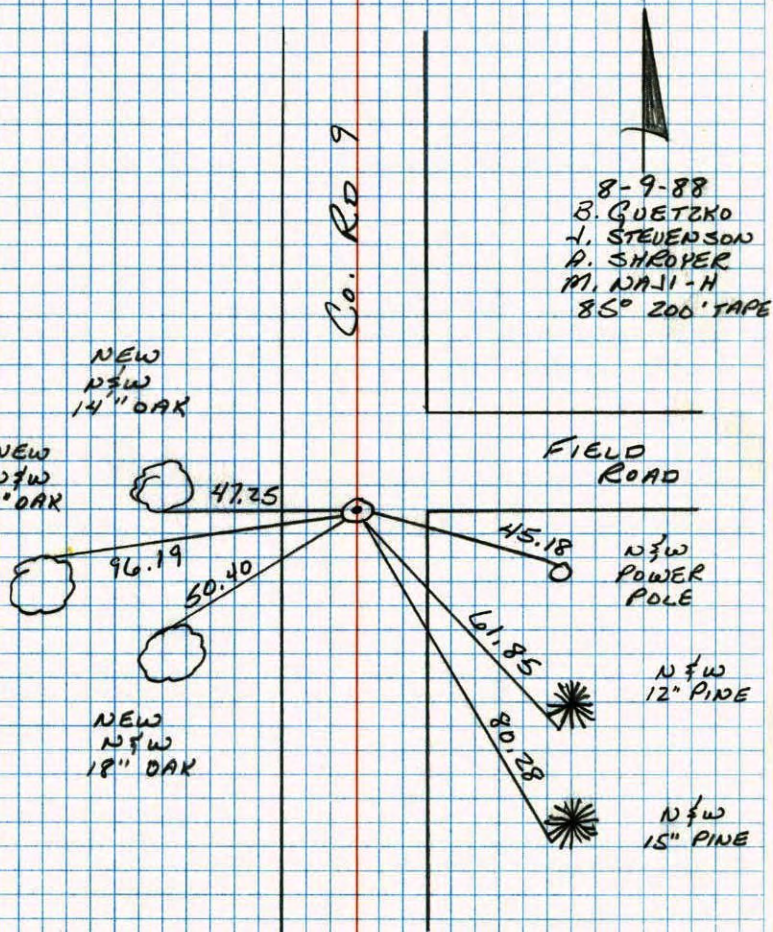 Co. R.D 9
8-9-88
B. GUETZKO
J. STEVENSON
A. SHROYER
M. NAJI-H
85° 200' TAPE
NEW
N&W
14" OAK
NEW
N&W
" OAK
47.25
96.19
FIELD
ROAD
45.18
N&W
POWER
POLE
61.85
N&W
12" PINE
80.28
N&W
15" PINE
NEW
N&W
18" OAK